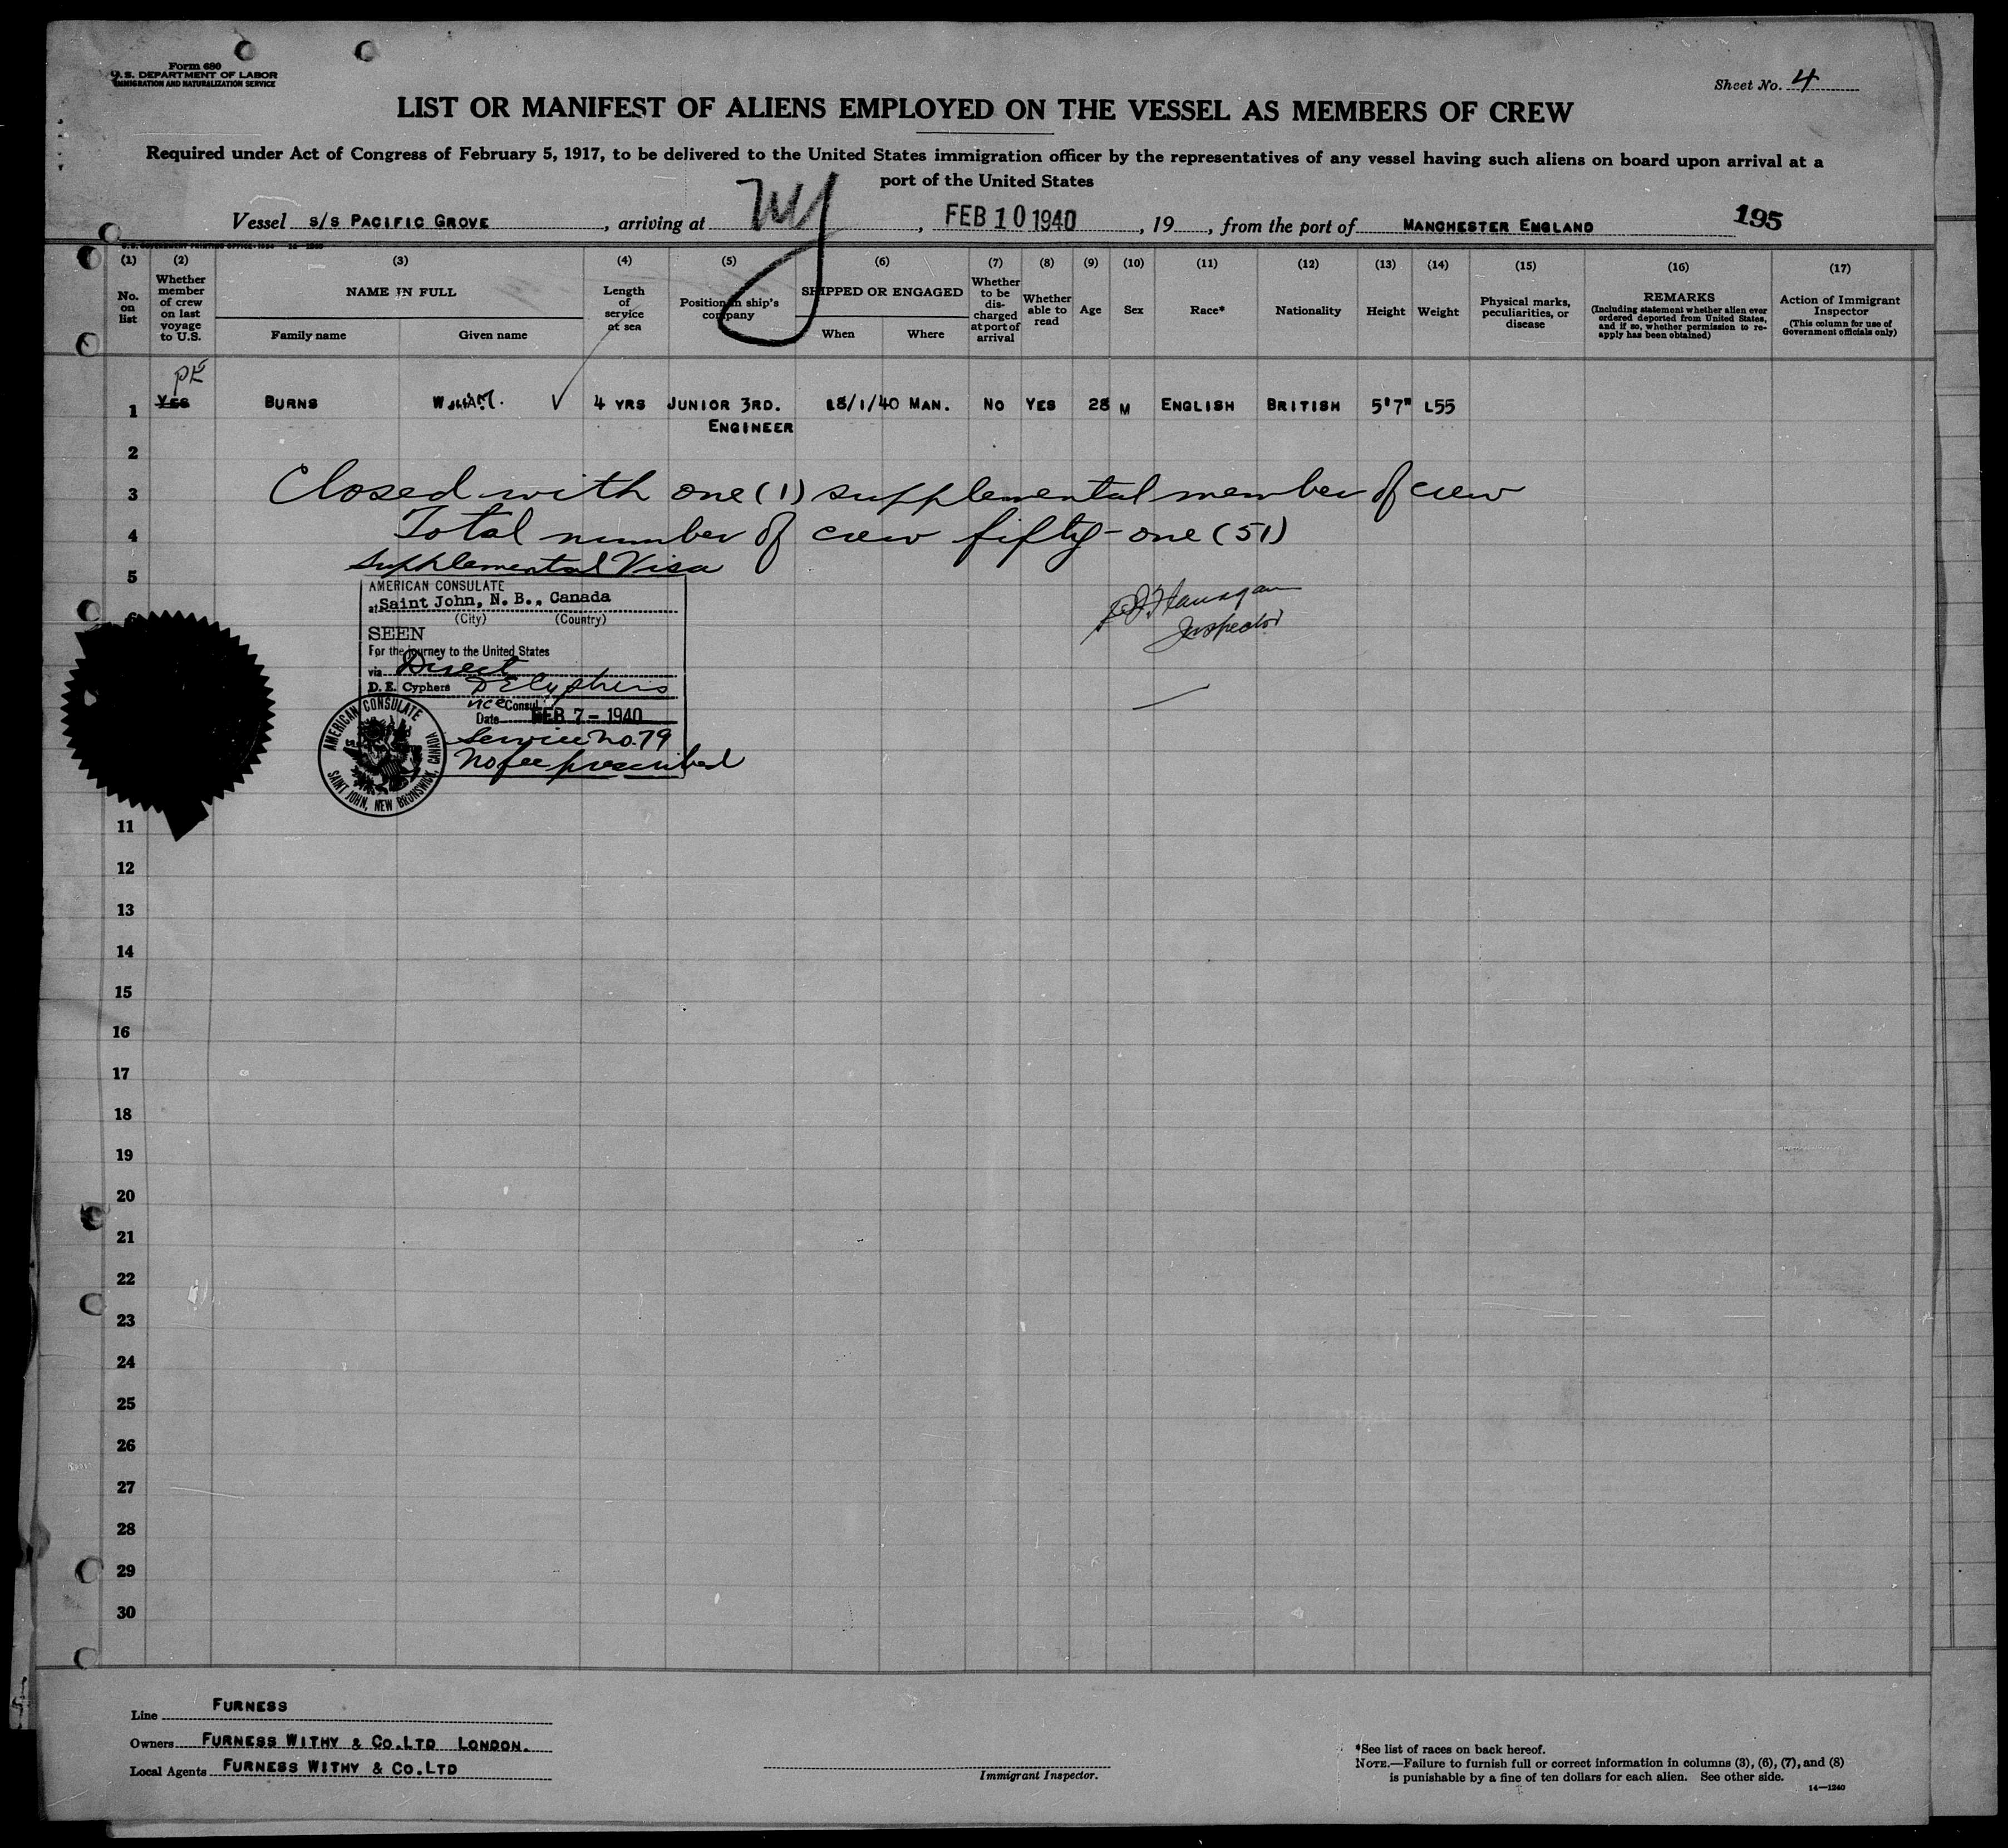 Form 680
U. S. DEPARTMENT OF LABOR
IMMIGRATION AND NATURALIZATION SERVICE
Sheet No. 4
LIST OR MANIFEST OF ALIENS EMPLOYED ON THE VESSEL AS MEMBERS OF CREW
Required under Act of Congress of February 5, 1917, to be delivered to the United States immigration officer by the representatives of any vessel having such aliens on board upon arrival at a
port of the United States
Vessel S/S PACIFIC GROVE, arriving at NY, FEB 10 1940, 19, from the port of MANCHESTER ENGLAND 195
(1) (2) (3) (4) (5) (6) (7) (8) (9) (10) (11) (12) (13) (14) (15) (16) (17)
No. on list
Whether member of crew on last voyage to U.S.
NAME IN FULL
Family name Given name
Length of service at sea
Position in ship's company
SHIPPED OR ENGAGED
When Where
Whether to be discharged at port of arrival
Whether able to read
Age
Sex
Race*
Nationality
Height
Weight
Physical marks, peculiarities, or disease
REMARKS
(Including statement whether alien ever ordered deported from United States, and if so, whether permission to reapply has been obtained)
Action of Immigrant Inspector
(This column for use of Government officials only)
1 YES BURNS WILLIAM. 4 YRS JUNIOR 3RD. 18/1/40 MAN. NO YES 28 M ENGLISH BRITISH 5'7" 155
ENGINEER
2
3 Closed with one (1) supplemental member of crew
4 Total number of crew fifty-one (51)
Supplemental Visa
5
AMERICAN CONSULATE
at Saint John, N. B., Canada
(City) (Country)
SEEN
For the journey to the United States
via Direct
D. E. Cyphers D E Cyphers
Vice Consul
Date FEB 7 - 1940
Service No. 79
No fee prescribed
AMERICAN CONSULATE
SAINT JOHN, NEW BRUNSWICK, CANADA
Flanagan
Inspector
11
12
13
14
15
16
17
18
19
20
21
22
23
24
25
26
27
28
29
30
Line FURNESS
Owners FURNESS WITHY & CO. LTD LONDON.
Local Agents FURNESS WITHY & CO. LTD
Immigrant Inspector.
*See list of races on back hereof.
NOTE.—Failure to furnish full or correct information in columns (3), (6), (7), and (8)
is punishable by a fine of ten dollars for each alien. See other side.
14—1240